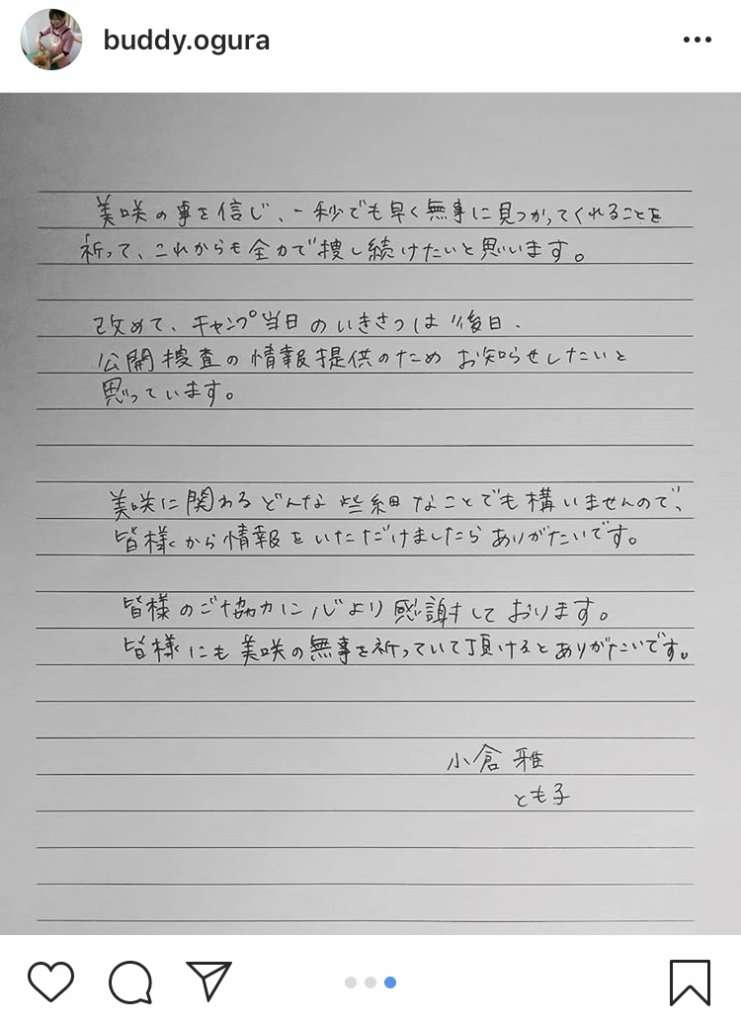 buddy.ogura
美咲の事を信じ、一秒でも早く無事に見つかってくれることを
祈って、これからも全力で捜し続けたいと思います。
改めて、キャンプ当日のいきさつは後日、
公開捜査の情報提供のため お知らせしたいと
思っています。
美咲に関わるどんな些細なことでも構いませんので、
皆様から情報をいただけましたらありがたいです。
皆様のご協力に心より感謝しております。
皆様にも美咲の無事を祈っていて頂けるとありがたいです。
小倉 雅
とも子